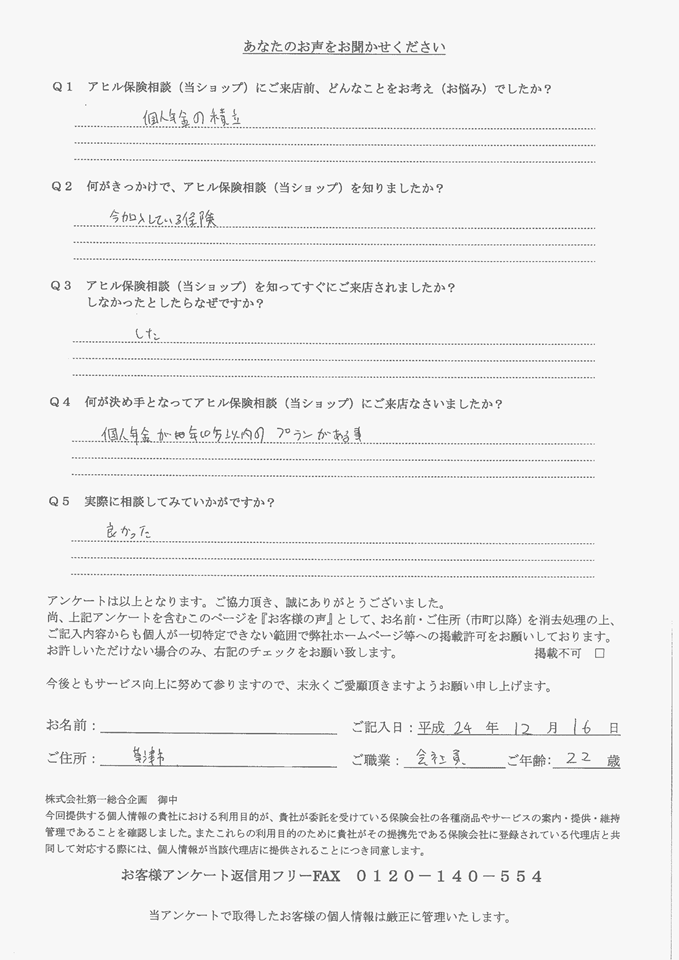 あなたのお声をお聞かせください
Q1 アヒル保険相談(当ショップ)にご来店前、どんなことをお考え(お悩み)でしたか?
個人年金の積立
Q2 何がきっかけで、アヒル保険相談(当ショップ)を知りましたか?
今加入している保険
Q3 アヒル保険相談(当ショップ)を知ってすぐにご来店されましたか?
しなかったとしたらなぜですか?
した
Q4 何が決め手となってアヒル保険相談(当ショップ)にご来店なさいましたか?
個人年金が 以内の プランがある事
Q5 実際に相談してみていかがですか?
良かった
アンケートは以上となります。ご協力頂き、誠にありがとうございました。
尚、上記アンケートを含むこのページを『お客様の声』として、お名前・ご住所(市町以降)を消去処理の上、
ご記入内容からも個人が一切特定できない範囲で弊社ホームページ等への掲載許可をお願いしております。
お許しいただけない場合のみ、右記のチェックをお願い致します。 掲載不可 □
今後ともサービス向上に努めて参りますので、末永くご愛顧頂きますようお願い申し上げます。
お名前: ご記入日:平成 24 年 12 月 16 日
ご住所: 草津市 ご職業: 会社員 ご年齢: 22 歳
株式会社第一総合企画 御中
今回提供する個人情報の貴社における利用目的が、貴社が委託を受けている保険会社の各種商品やサービスの案内・提供・維持
管理であることを確認しました。またこれらの利用目的のために貴社がその提携先である保険会社に登録されている代理店と共
同して対応する際には、個人情報が当該代理店に提供されることにつき同意します。
お客様アンケート返信用フリーFAX 0120-140-554
当アンケートで取得したお客様の個人情報は厳正に管理いたします。